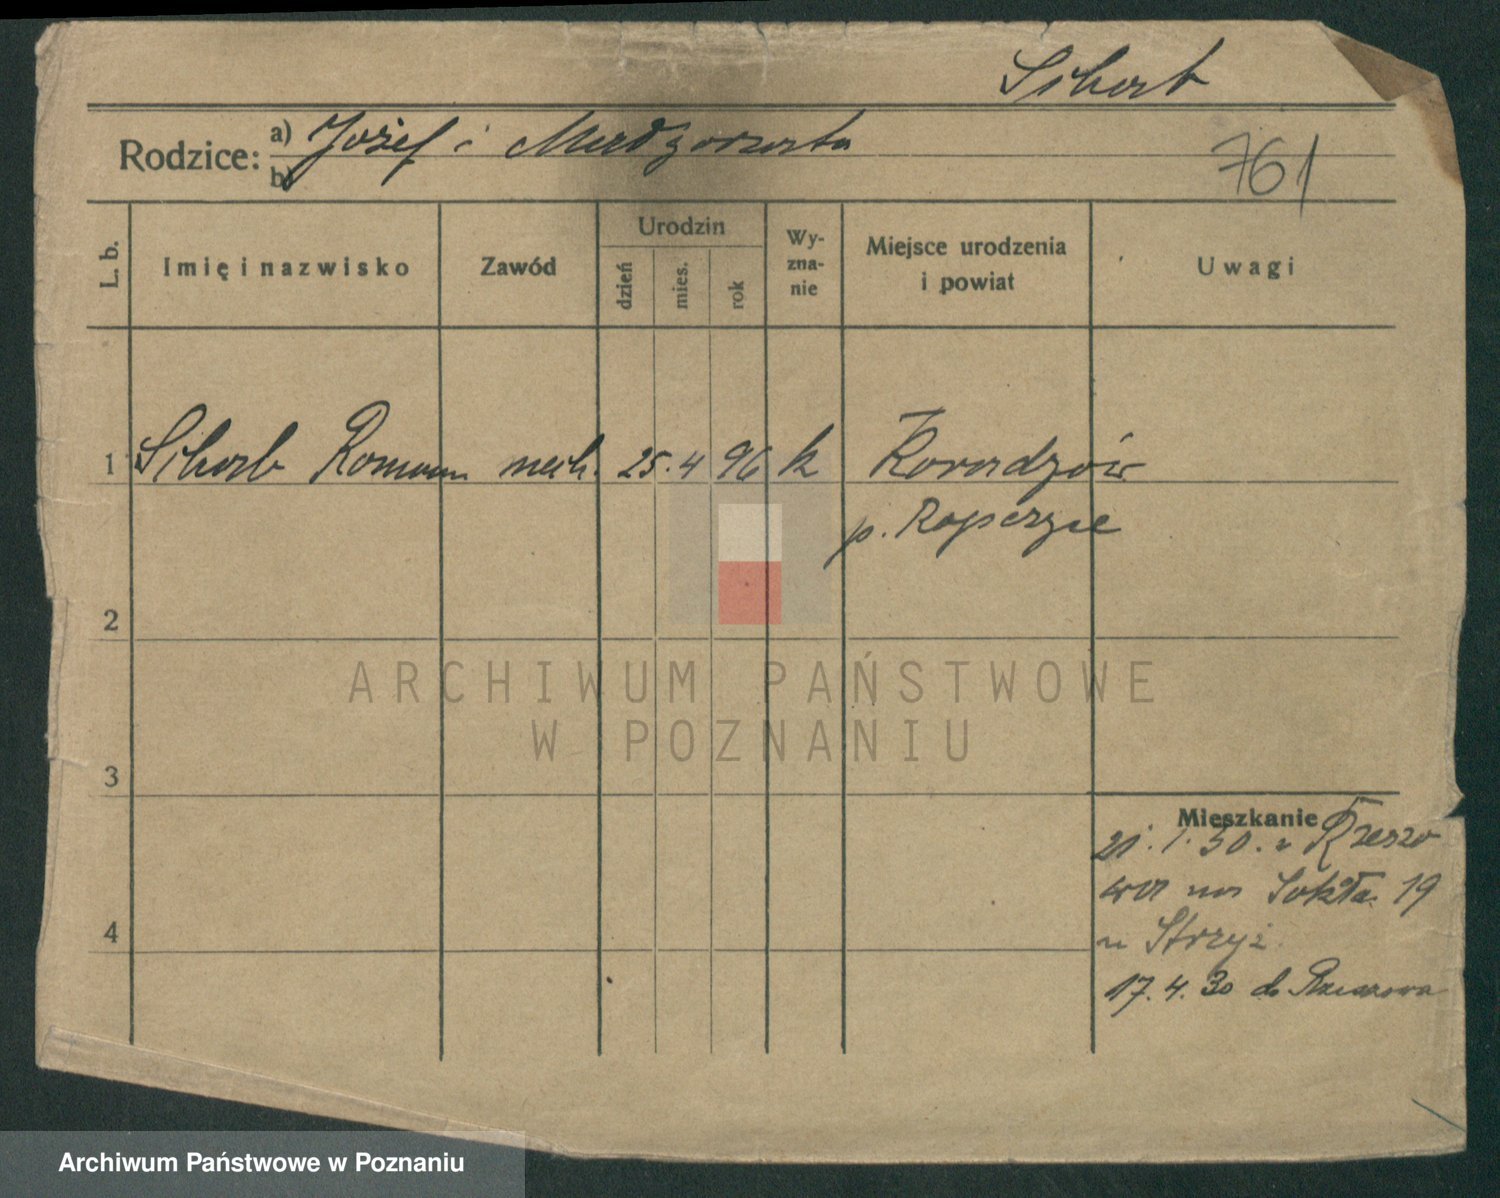 Siborb
Rodzice:
a) Józef i
b)
761
L. b.
Imię i nazwisko
Zawód
Urodzin
dzień
mies.
rok
Wy-
zna-
nie
Miejsce urodzenia
i powiat
Uwagi
1 Siborb Roman mech. 25. 4 96 k
p. Ropczyce
2
3
4
Mieszkanie
21. 1. 30. z Rzeszo
wa na Sokła 19
u
17. 4. 30 do Rzeszowa
ARCHIWUM PAŃSTWOWE
W POZNANIU
Archiwum Państwowe w Poznaniu